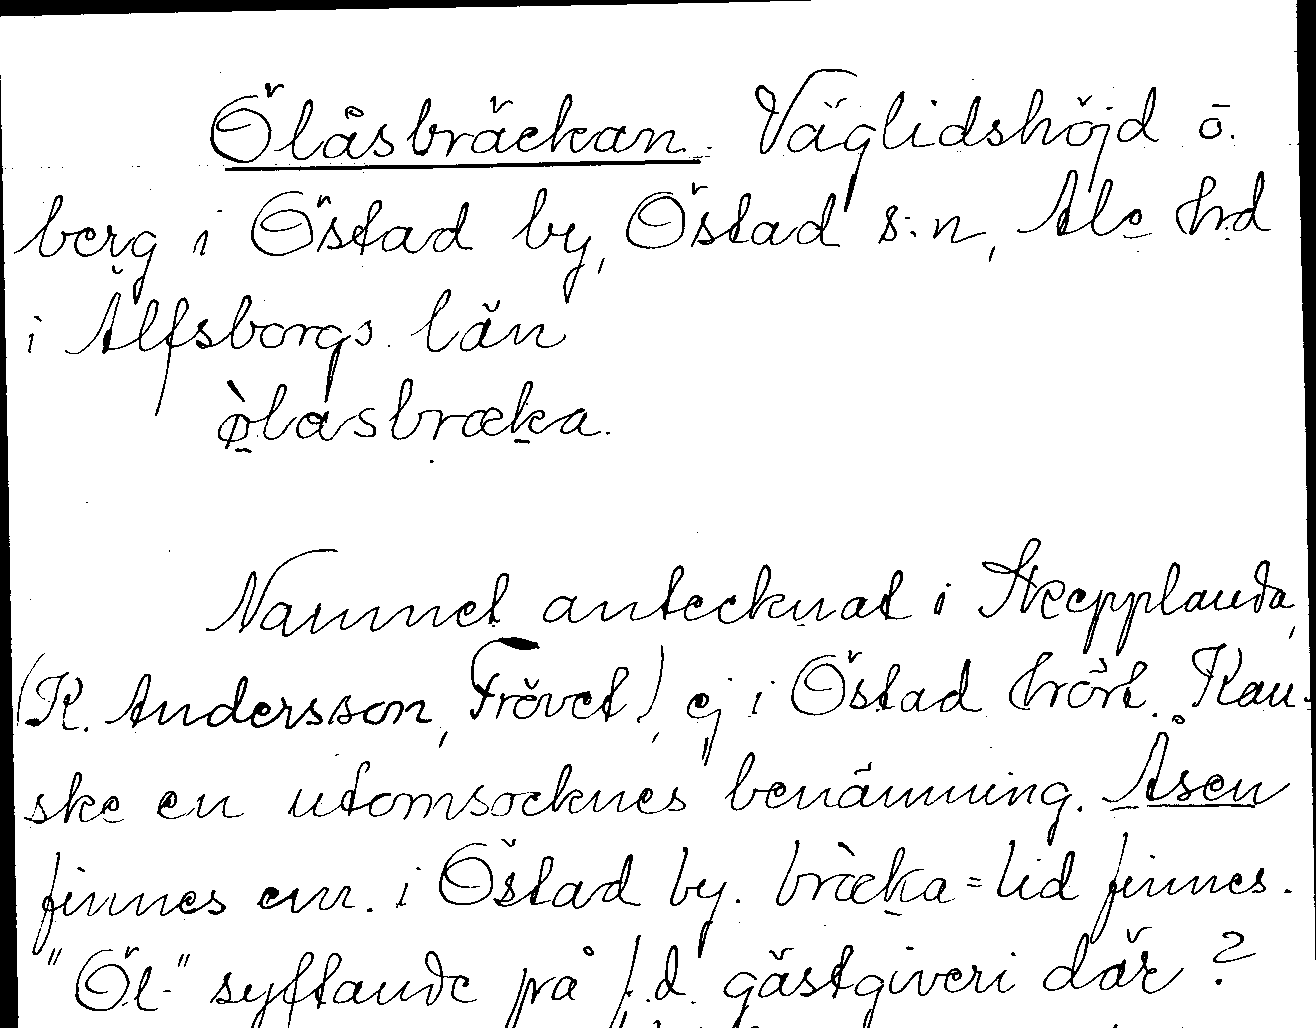 Ölåsbräckan. Väglidshöjd ö.
berg i Östad by, Östad s:n, Ale hd
i Älfsborgs län
ø̀låsbræka.
Namnet antecknat i Skepplanda,
(K. Andersson, Frövet), ej i Östad hört. Kan-
ske en utomsocknes benämning. Åsen
finnes em. i Östad by. bræ̀ka = lid finnes.
"Öl-" syftande på f.d. gästgiveri där?